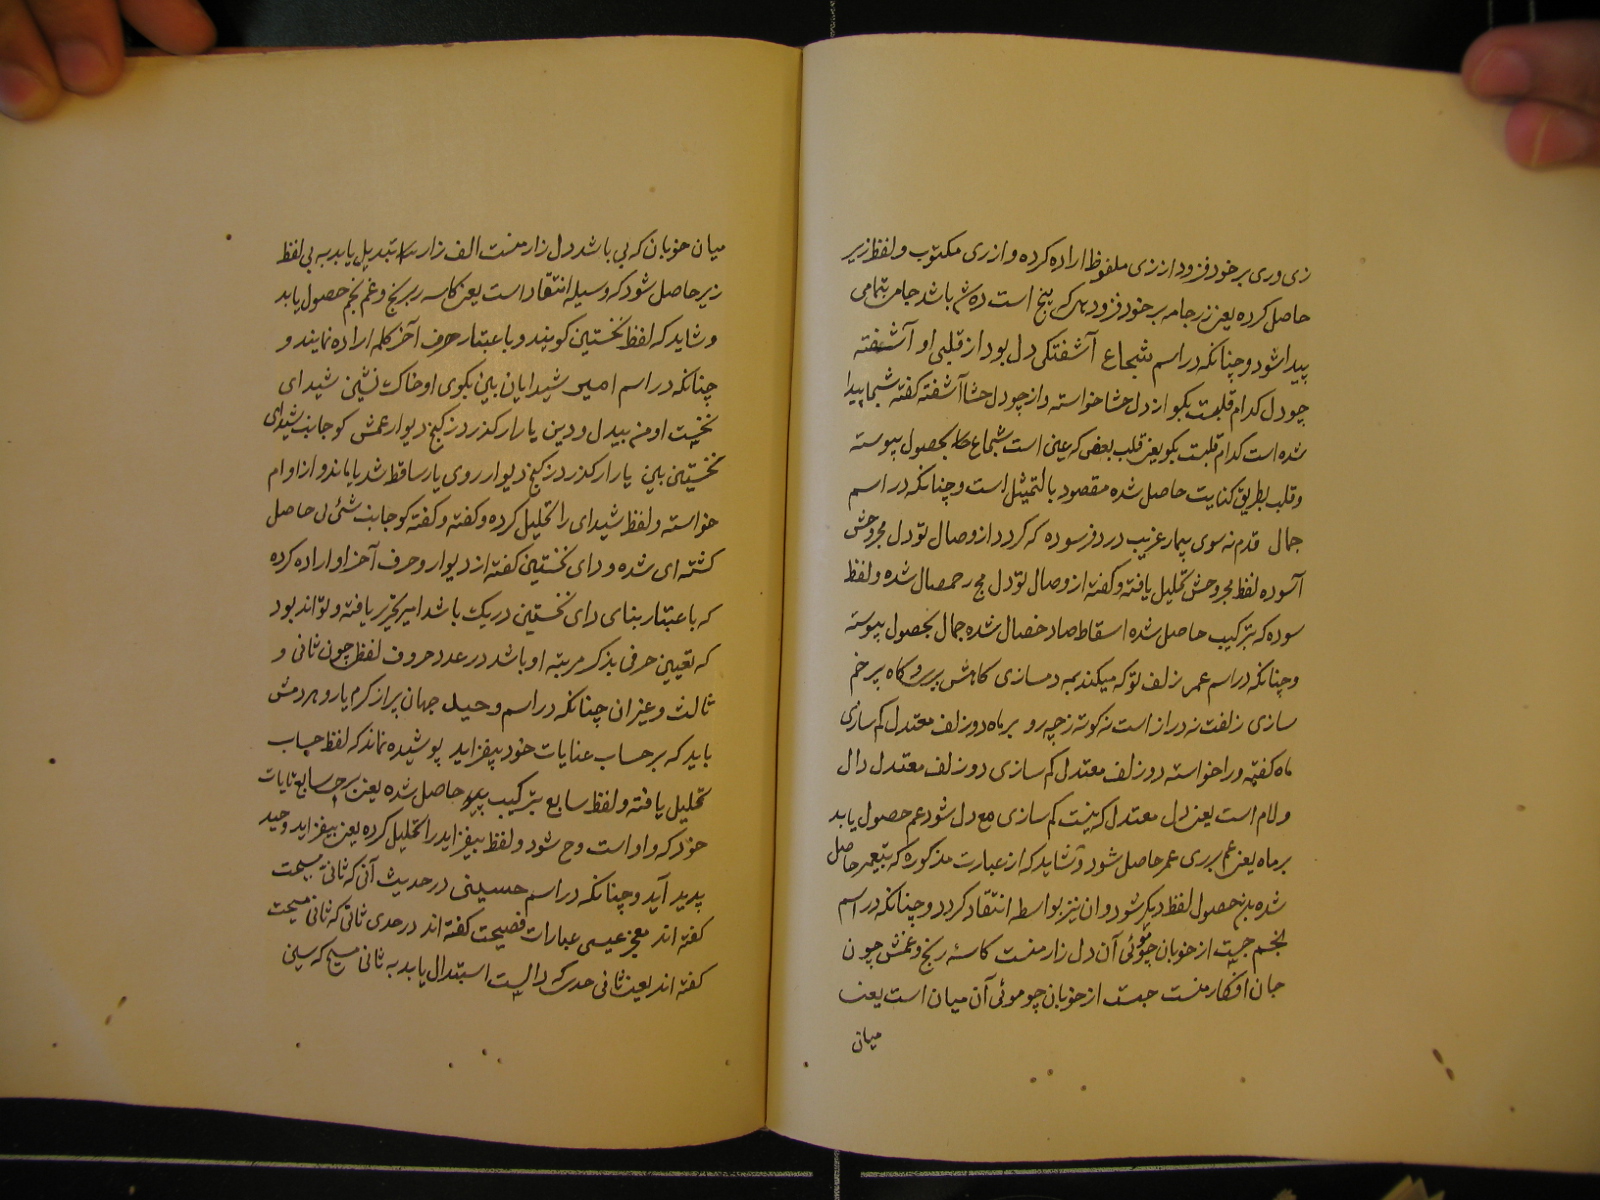 زی وری برخود فزود از زی ملفوظ اراده کرده و از ری مکتوب و لفظ زیر
حاصل کرده یعنی زر جامه برخود فزود هر که پنج است ده باشد جامه بتمامی
پیدا شود و چنانکه در اسم شجاع آشفتکی دل بود از قلبی او آشفته
چو دل کدام قلبت بکو از دل حشا خواسته و از چو دل حشا آشفته کفته شجا پیدا
شده است کدام قلبت بکو یعنی قلب بعضی که عین است شجاع بحصول پیوسته
و قلب بطریق کنایت حاصل شده مقصود بالتمثیل است و چنانکه در اسم
جمال قدم نه سوی بیمار غریب در دفرسوده که کردد از وصال تو دل مجروحش
آسوده لفظ مجروحش تحلیل یافته و کفته از وصال تو دل مج رحمصال شده و لفظ
سوده که بترکیب حاصل شده اسقاط صاد خصال شده جمال بحصول پیوسته
و چنانکه در اسم عمر زلف تو که میکند بمه دمسازی کاهش بر رو کاه بر خم
سازی زلفت نه دراز است نه کوته زچه رو بر ماه دو زلف معتدل کم سازی
ماه کفته و را خواسته دو زلف معتدل کم سازی دو زلف معتدل دال
و لام است یعنی دل معتدل که نیست کم سازی مع دل شود عم حصول یابد
بر ماه یعنی عم بر ری عمر حاصل شود و شاید که از عبارت مذکوره که بتعمیر حاصل
شده بدین حصول لفظ دیکر شود و ان نیز بواسطه انتقاد کردد و چنانکه در اسم
نجم جست از خوبان چو موئی آن دل زار منست کاسه رنج و غمش چون
جان افکار منست جست از خوبان چو موئی آن میان است یعنی
میان
میان خوبان که بی باشد دل زار منست الف زار تبدیل یابد به بی لفظ
زیر حاصل شود که وسیله انتقاد است یعنی کاسه زیر رنج و غم نجم حصول یابد
و شاید که لفظ نخستین کویند و باعتبار حرف آخر کلمه اراده نمایند و
چنانکه در اسم امیر شیدایان بین بکوی او خاک نشین شیدای
نخست او من بیدل و دین یا رار کذر در کنج دیوار غمش کو جانب شیدای
نخستین بین یا رار کذر در کنج دیوار روی یار ساقط شد یا باند و از او ام
خواسته و لفظ شیدای را تحلیل کرده و کفته و کفته کو جانب شئی ی حاصل
کشته ای شده و دای نخستین کفته از دیوار و حرف آخر او اراده کرده
که باعتبار بنای دای نخستین در یک باشد امیر تحریر یافته و تواند بود
که تعیین حرفی بذکر مرتبه او باشد در عدد حروف لفظ چون ثانی و
ثالث و غیر ان چنانکه در اسم وحید جهان پر از کرم یار و هر دمش
باید که بر حساب عنایات خود بیفزاید پوشیده نماند که لفظ حساب
تحلیل یافته و لفظ سابع بترکیب حاصل شده یعنی بر ح سابع نایات
خود که واو است وح شود و لفظ بیفزاید را تحلیل کرده یعنی بیفزاید وحید
پدید آید و چنانکه در اسم حسینی در حدیث آنی که ثانی مسیحت
کفته اند معجز عیسی عبارات فصیحت کفته اند در حدی ثانی که ثانی مسیحت
کفته اند یعنی ثانی حدی که دالیست استبدال یابد به ثانی مسیح که سینی